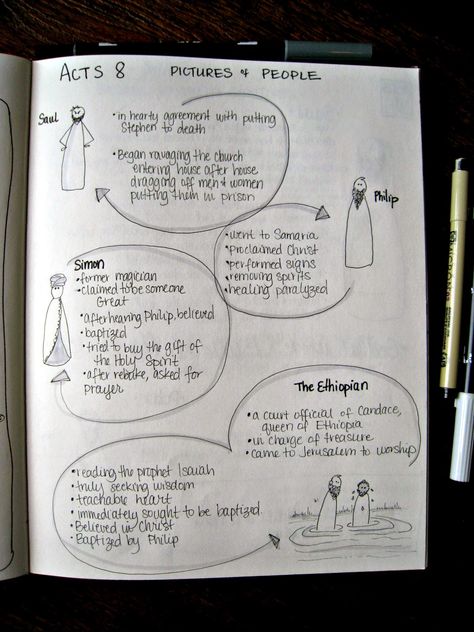 ACTS 8 PICTURES & PEOPLE
Saul
• in hearty agreement with putting
Stephen to death
• Began ravaging the church
entering house after house
dragging off men & women
putting them in prison
Philip
• went to Samaria
• Proclaimed Christ
• performed signs
• removing spirits
• healing paralyzed
Simon
• former magician
• claimed to be someone
Great
• after hearing Philip, believed
• baptized
• tried to buy the gift of
the Holy Spirit
• after rebuke, asked for
prayer
The Ethiopian
• a court official of Candace,
queen of Ethiopia
• in charge of treasure
• came to Jerusalem to worship
• reading the prophet Isaiah
• truly seeking wisdom
• teachable heart
• immediately sought to be baptized.
• Believed in Christ
• Baptized by Philip